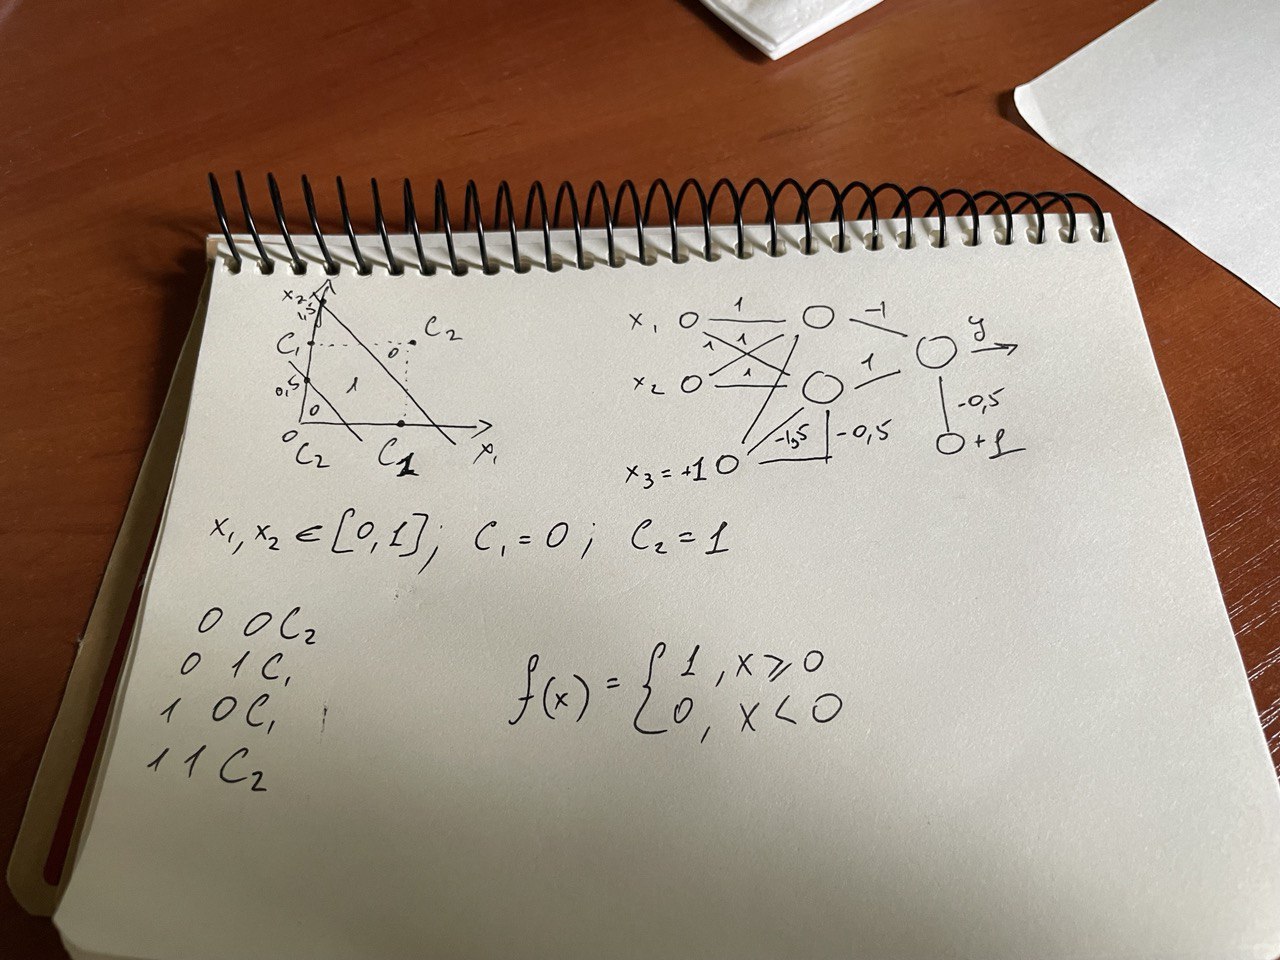 x₂
1,5
C₁
C₂
0
0,5
1
0
0
C₂
C1
x₁
x₁
1
-1
y
1
1
x₂
1
1
-0,5
-1,5
-0,5
x₃ = +1
+1
x₁, x₂ ∈ [0, 1]; C₁ = 0; C₂ = 1
0 0 C₂
0 1 C₁
1 0 C₁
1 1 C₂
f(x) = { 1, x ⩾ 0
0, x < 0